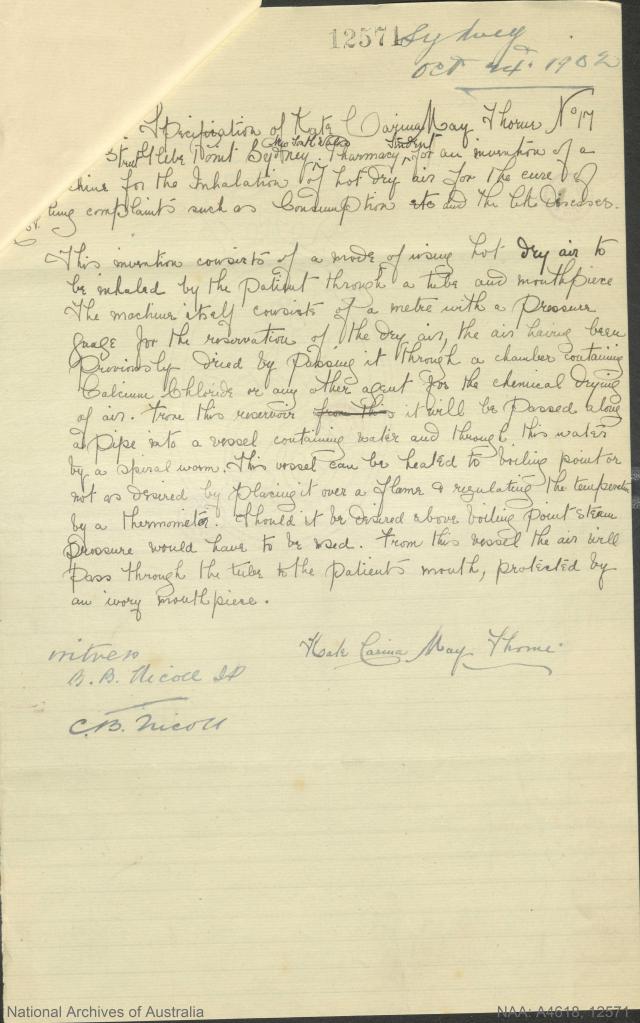 12571
Sydney
Oct 24th 1902
Specification of Kate Carina May Thorne No 17
Street Glebe Point Sydney New South Wales Pharmacy Student for an invention of a
chine for the Inhalation of hot dry air for the cure of
lung complaints such as Consumption etc and the like diseases.
This invention consists of a mode of using hot dry air to
be inhaled by the patient through a tube and mouthpiece
The machine itself consists of a metre with a Pressure
guage for the reservation of the dry air, the air having been
Previously dried by passing it through a chamber containing
Calcium Chloride or any other agent for the chemical drying
of air. From this reservoir from this it will be passed along
a pipe into a vessel containing water and through this water
by a spiral worm. This vessel can be heated to boiling point or
not as desired by placing it over a flame & regulating the temperature
by a thermometer. Should it be desired above boiling point steam
pressure would have to be used. From this vessel the air will
pass through the tube to the patients mouth, protected by
an ivory mouthpiece.
Kate Carina May Thorne.
witness
B. B. Nicoll JP
C. B. Nicoll
National Archives of Australia
NAA: A4618, 12571